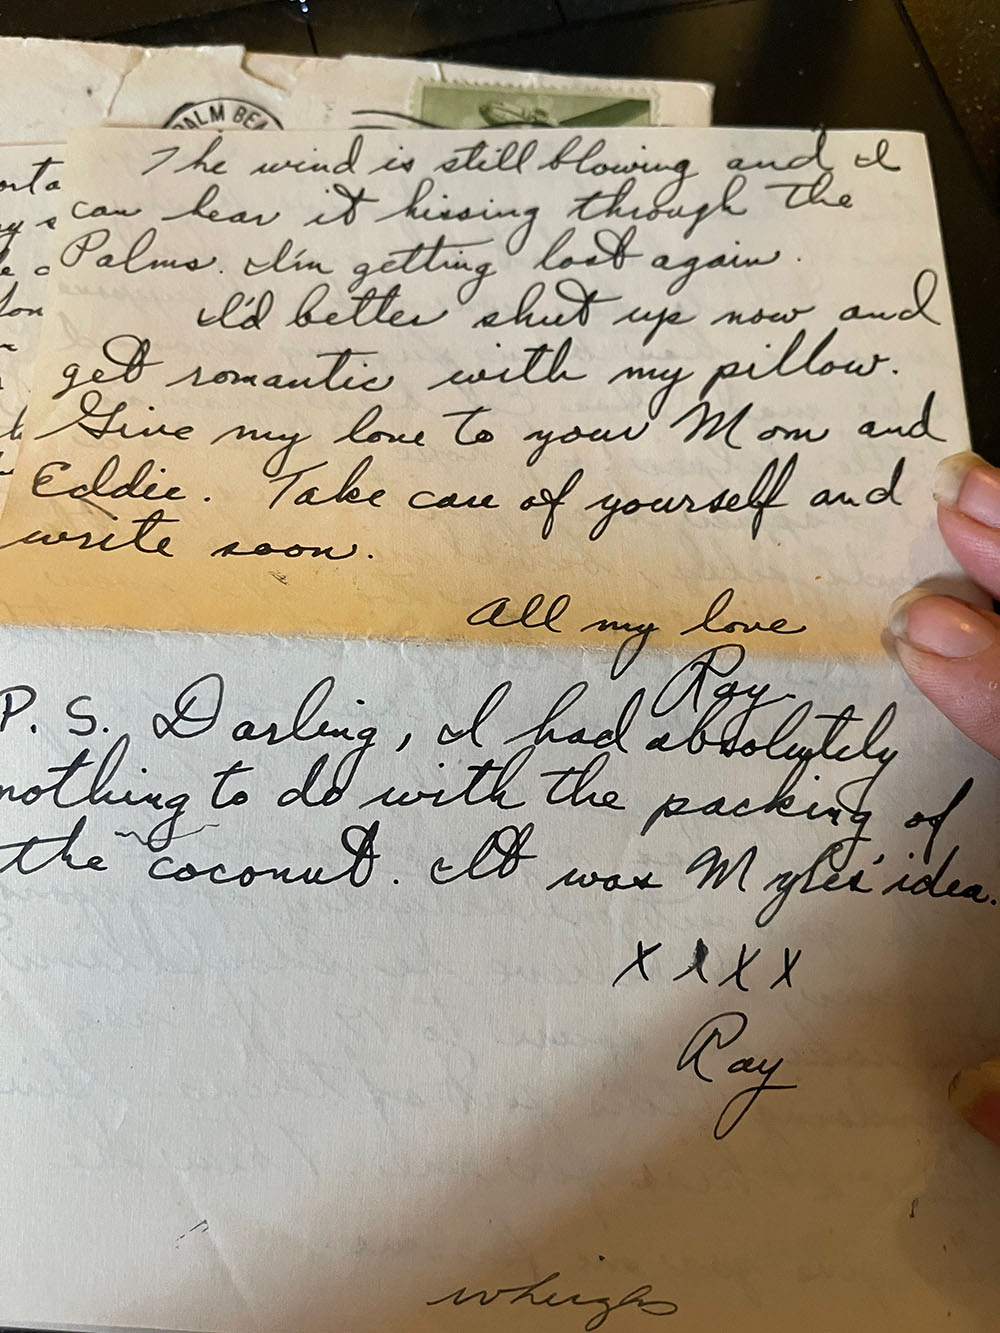 PALM BEA
The wind is still blowing and I
can hear it hissing through the
Palms. I'm getting lost again.
I'd better shut up now and
get romantic with my pillow.
Give my love to your Mom and
Eddie. Take care of yourself and
write soon.
All my love
Ray.
P. S. Darling, I had absolutely
nothing to do with the packing of
the coconut. It was Myles' idea.
X X X X
Ray